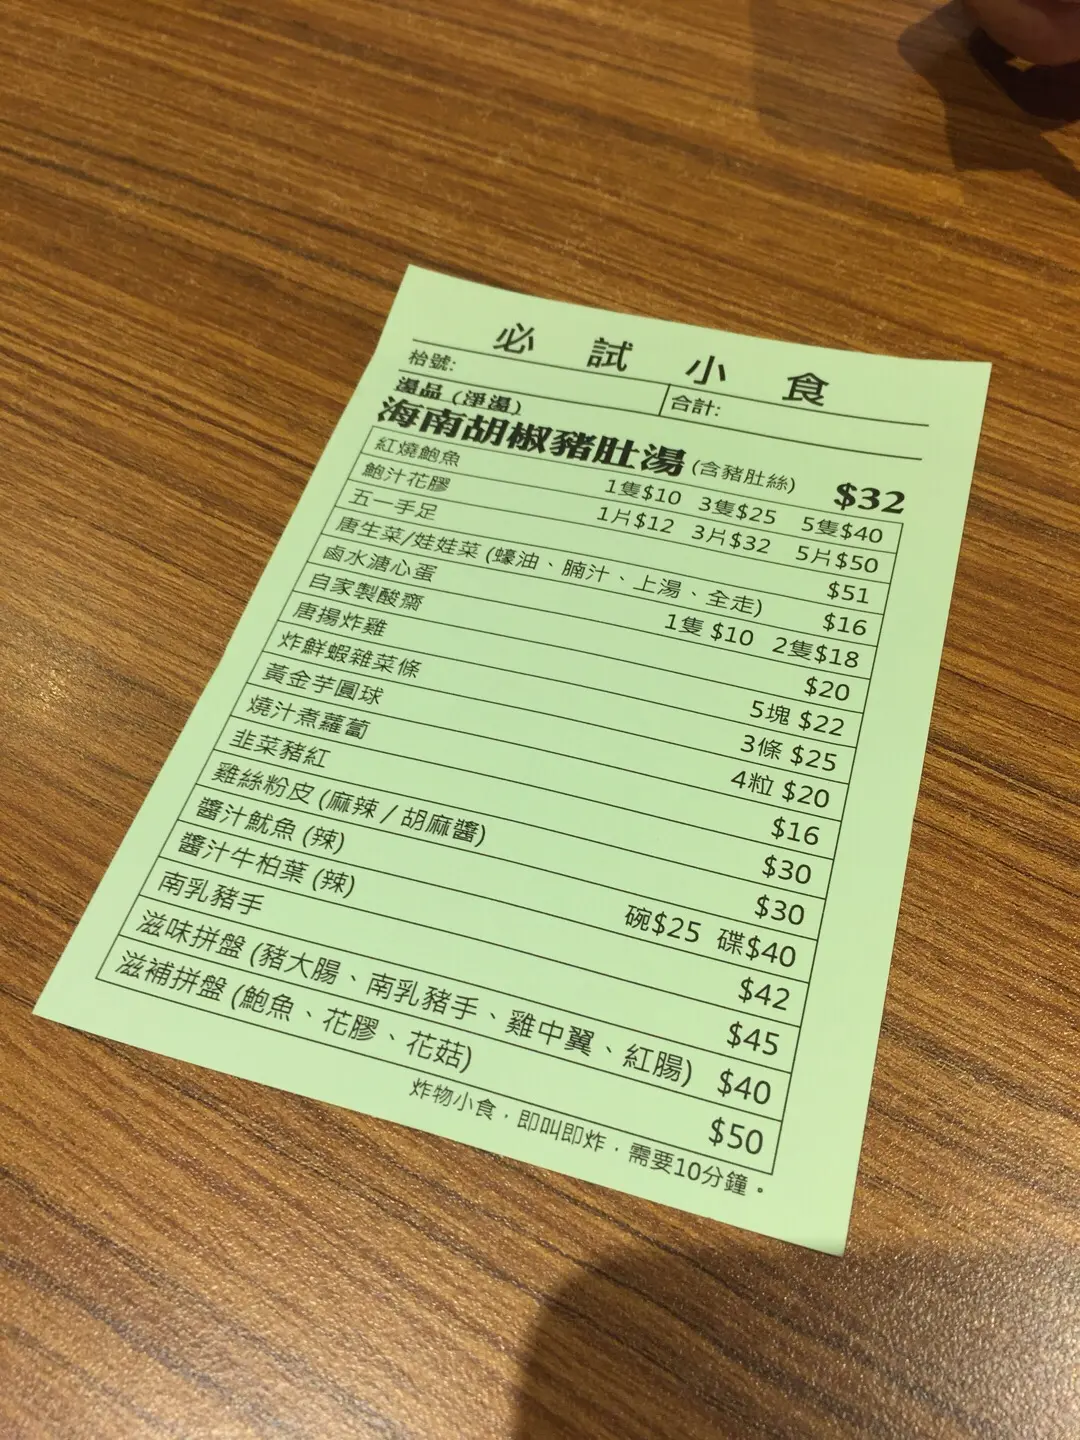 必試小食
枱號:
合計:
湯品 (淨湯)
海南胡椒豬肚湯 (含豬肚絲) $32
紅燒鮑魚 1隻$10 3隻$25 5隻$40
鮑汁花膠 1片$12 3片$32 5片$50
五一手足 $51
唐生菜/娃娃菜 (蠔油、腩汁、上湯、全走) $16
鹵水溏心蛋 1隻 $10 2隻$18
自家製酸齋 $20
唐揚炸雞 5塊 $22
炸鮮蝦雜菜條 3條 $25
黃金芋圓球 4粒 $20
燒汁煮蘿蔔 $16
韭菜豬紅 $30
雞絲粉皮 (麻辣 / 胡麻醬) $30
醬汁魷魚 (辣) 碗$25 碟$40
醬汁牛柏葉 (辣) $42
南乳豬手 $45
滋味拼盤 (豬大腸、南乳豬手、雞中翼、紅腸) $40
滋補拼盤 (鮑魚、花膠、花菇) $50
炸物小食，即叫即炸，需要10分鐘。